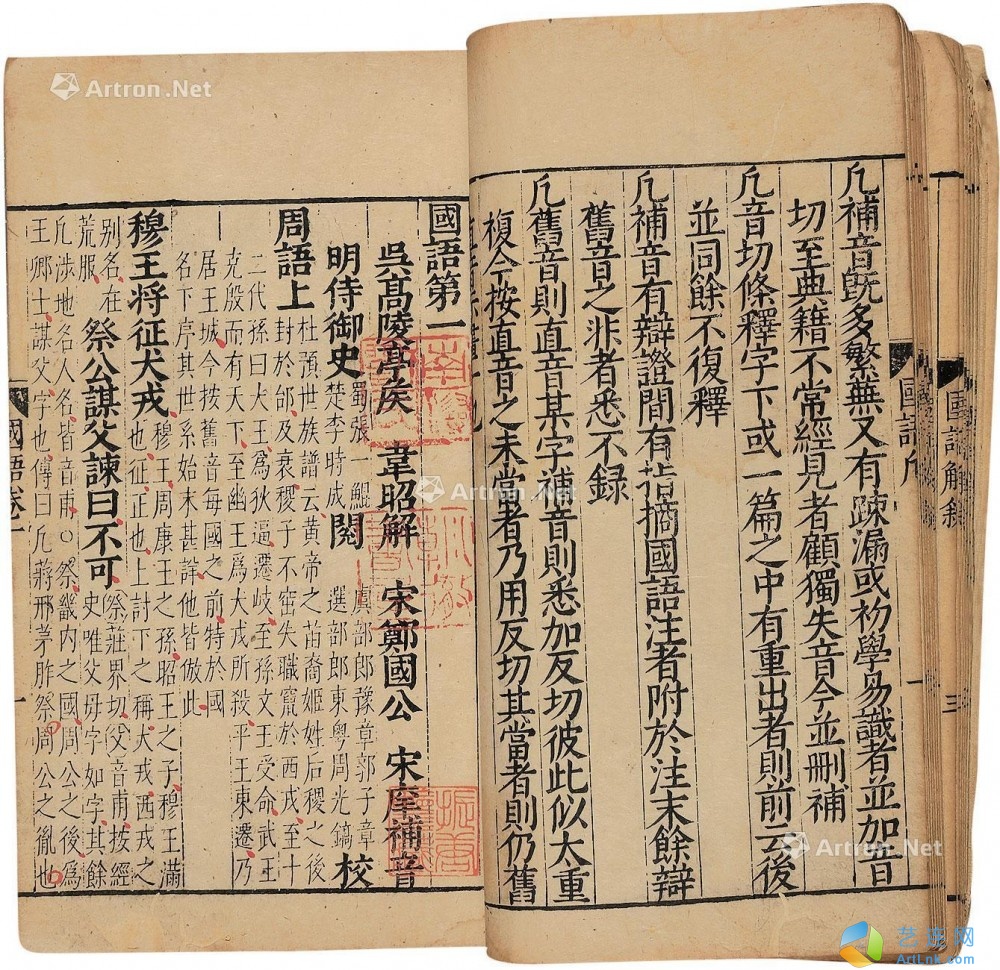 凡補音旣多繁蕪又有疎漏或初學昜識者並加音
切至典籍不常經見者顧獨失音今並刪補
凡音切條釋字下或一篇之中有重出者則前云後
並同餘不復釋
凡補音有辯證間有指摘國語注者附於注末餘辯
舊音之非者悉不錄
凡舊音則直音某字補音則悉加反切彼此似太重
複今按直音之未當者乃用反切其當者則仍舊
國語凡
一
國語解叙
三
國語第一
吳髙陵亭矦 韋昭解 宋鄭國公 宋庠補音
明侍御史 蜀張一鯤 楚李時成 閱 選部郎東粤周光鎬 虞部郎豫章郭子章 校
周語上
杜預世族譜云黄帝之苗裔姬姓后稷之後
封於邰及衰稷子不窋失職竄於西戎至十
二代孫曰大王爲狄逼遷岐至孫文王受命武王
克殷而有天下至幽王爲犬戎所殺平王東遷乃
居王城今按舊音每國之前特於國
名下序其世系始末甚詳他皆倣此
穆王将征犬戎
穆王周康王之孫昭王之子穆王滿
也征正也上討下之稱犬戎西戎之
别名在
荒服
祭公謀父諫曰不可
祭莊界切父音甫按經
史唯父母字如字其餘
凡涉地名人名皆音甫○祭畿内之國周公之後爲
王卿士謀父字也傳曰凡蔣邢茅胙祭周公之胤也
國語卷一
一
Artron.Net
Artron.Net
Artron.Net
艺速网
ArtLnk.com